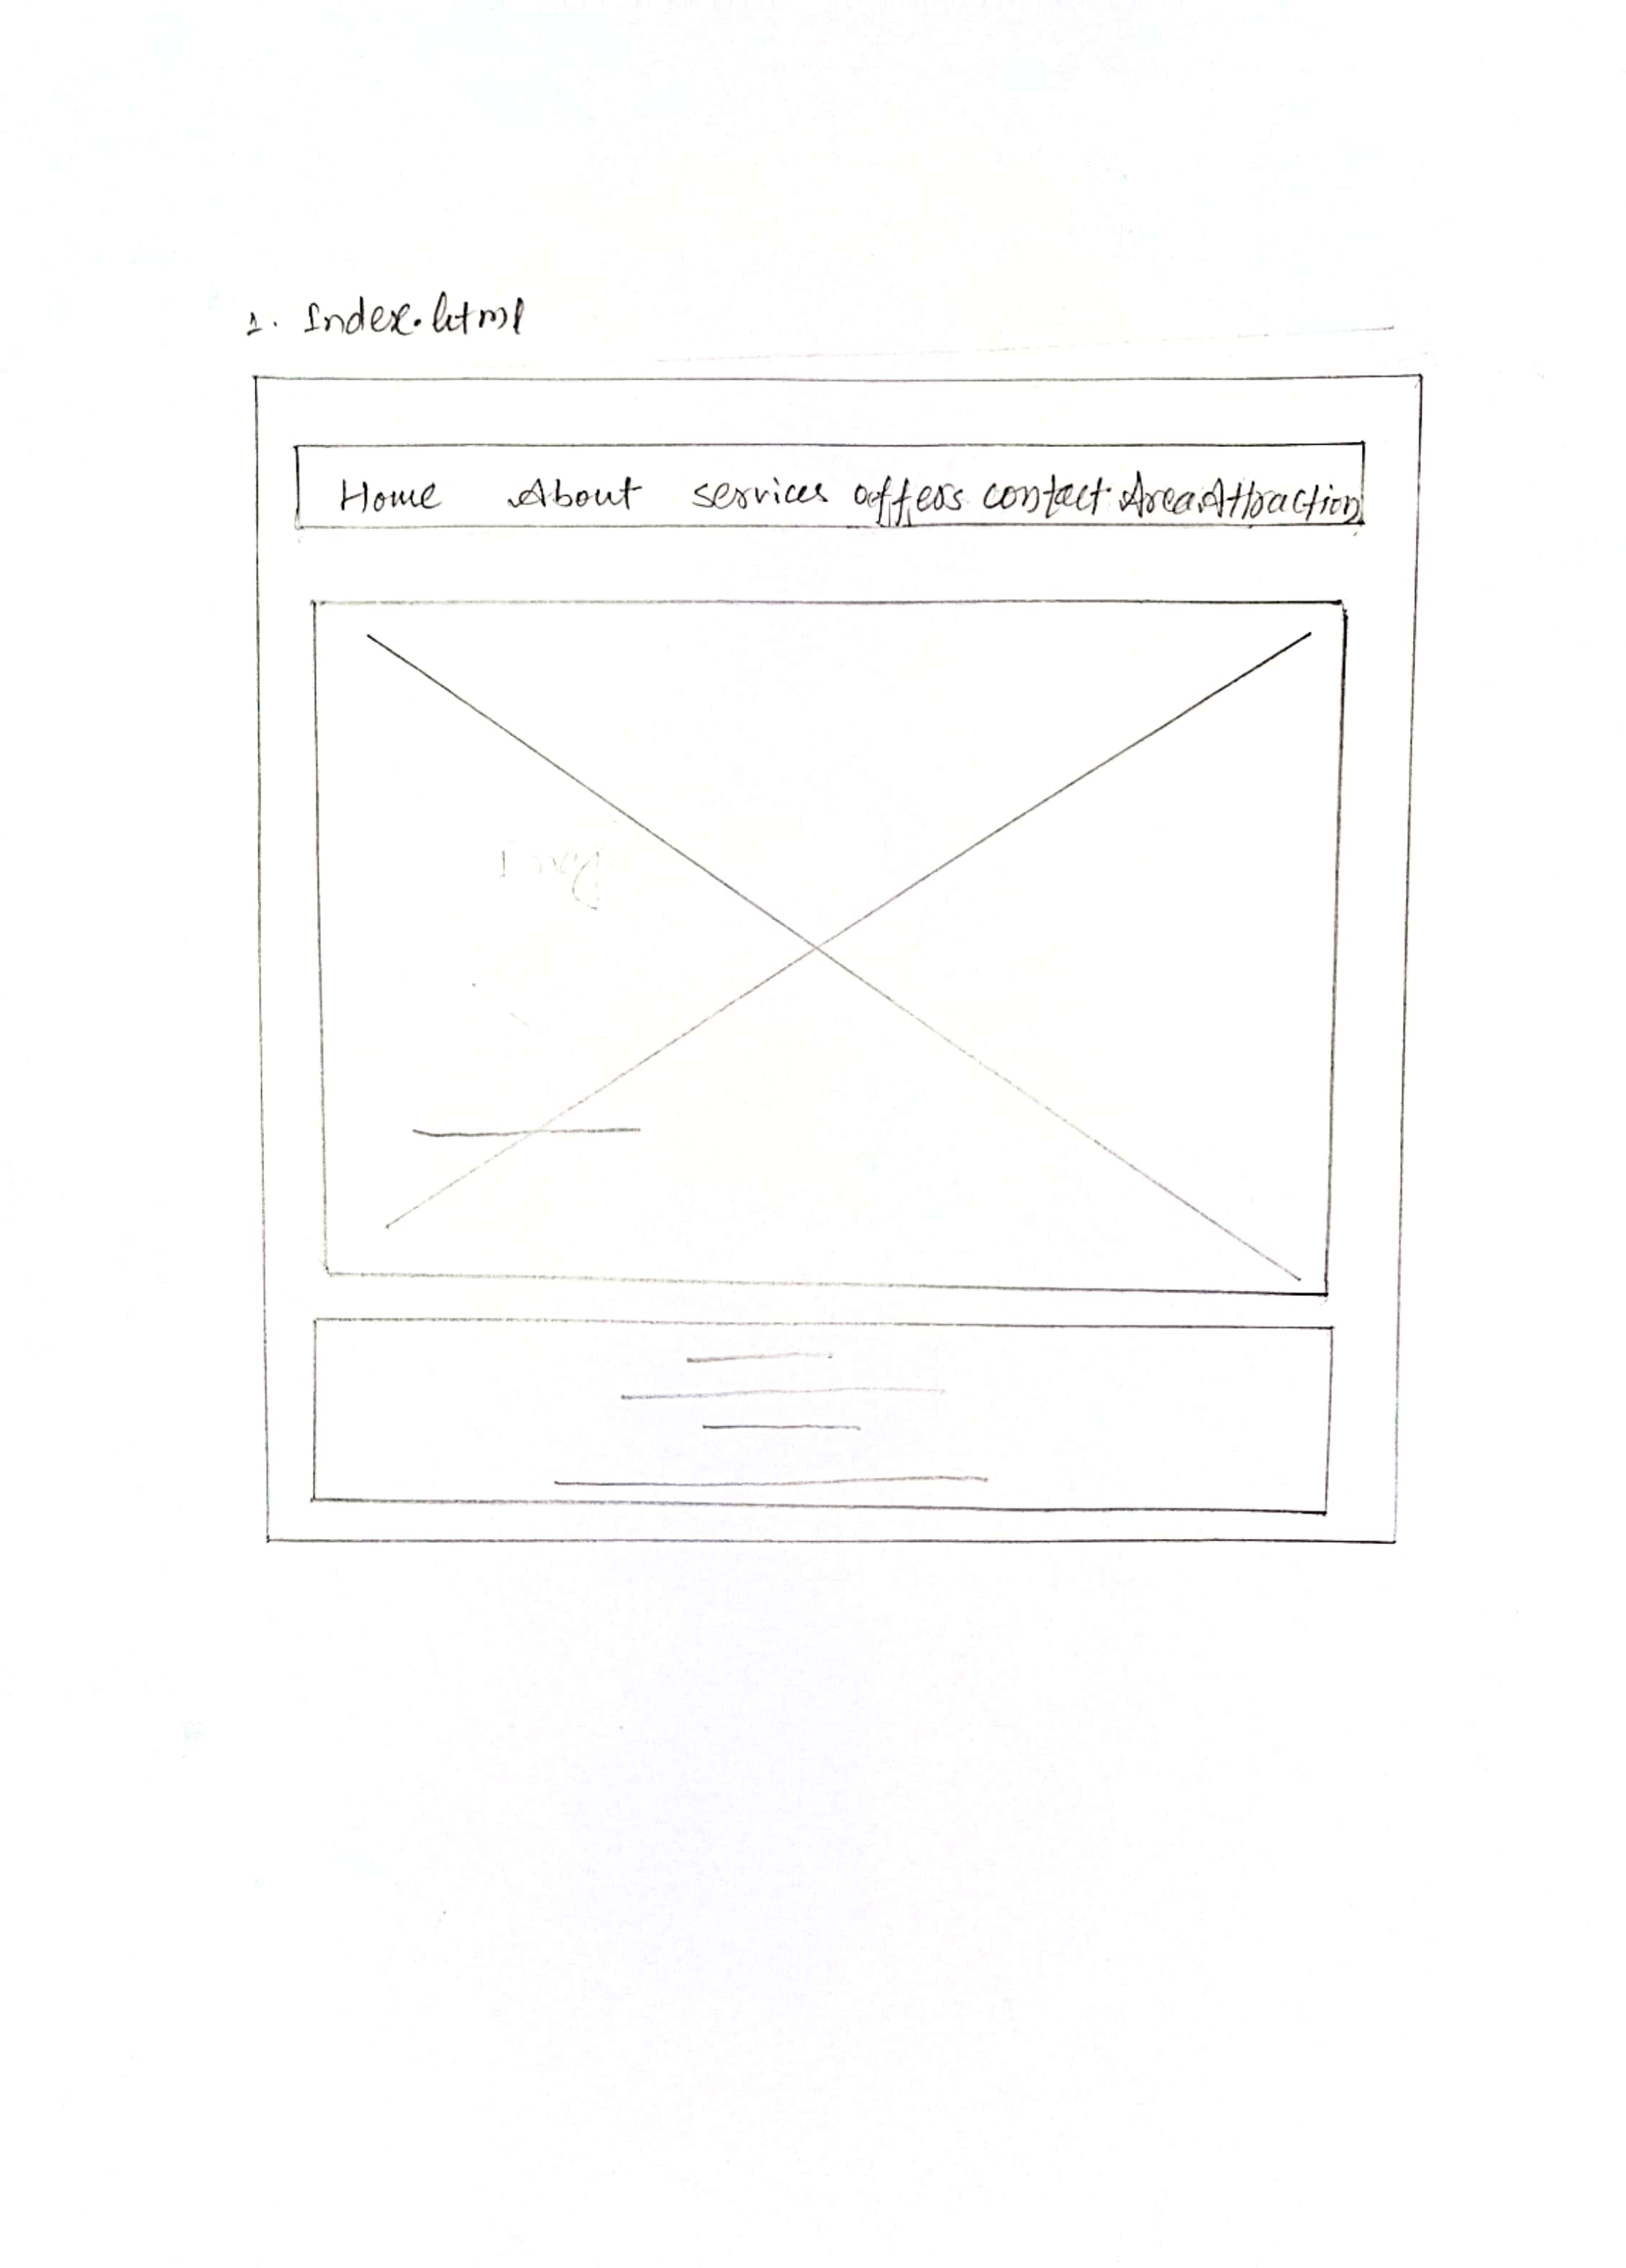 1. Index.html
Home About services offers contact Area Attraction